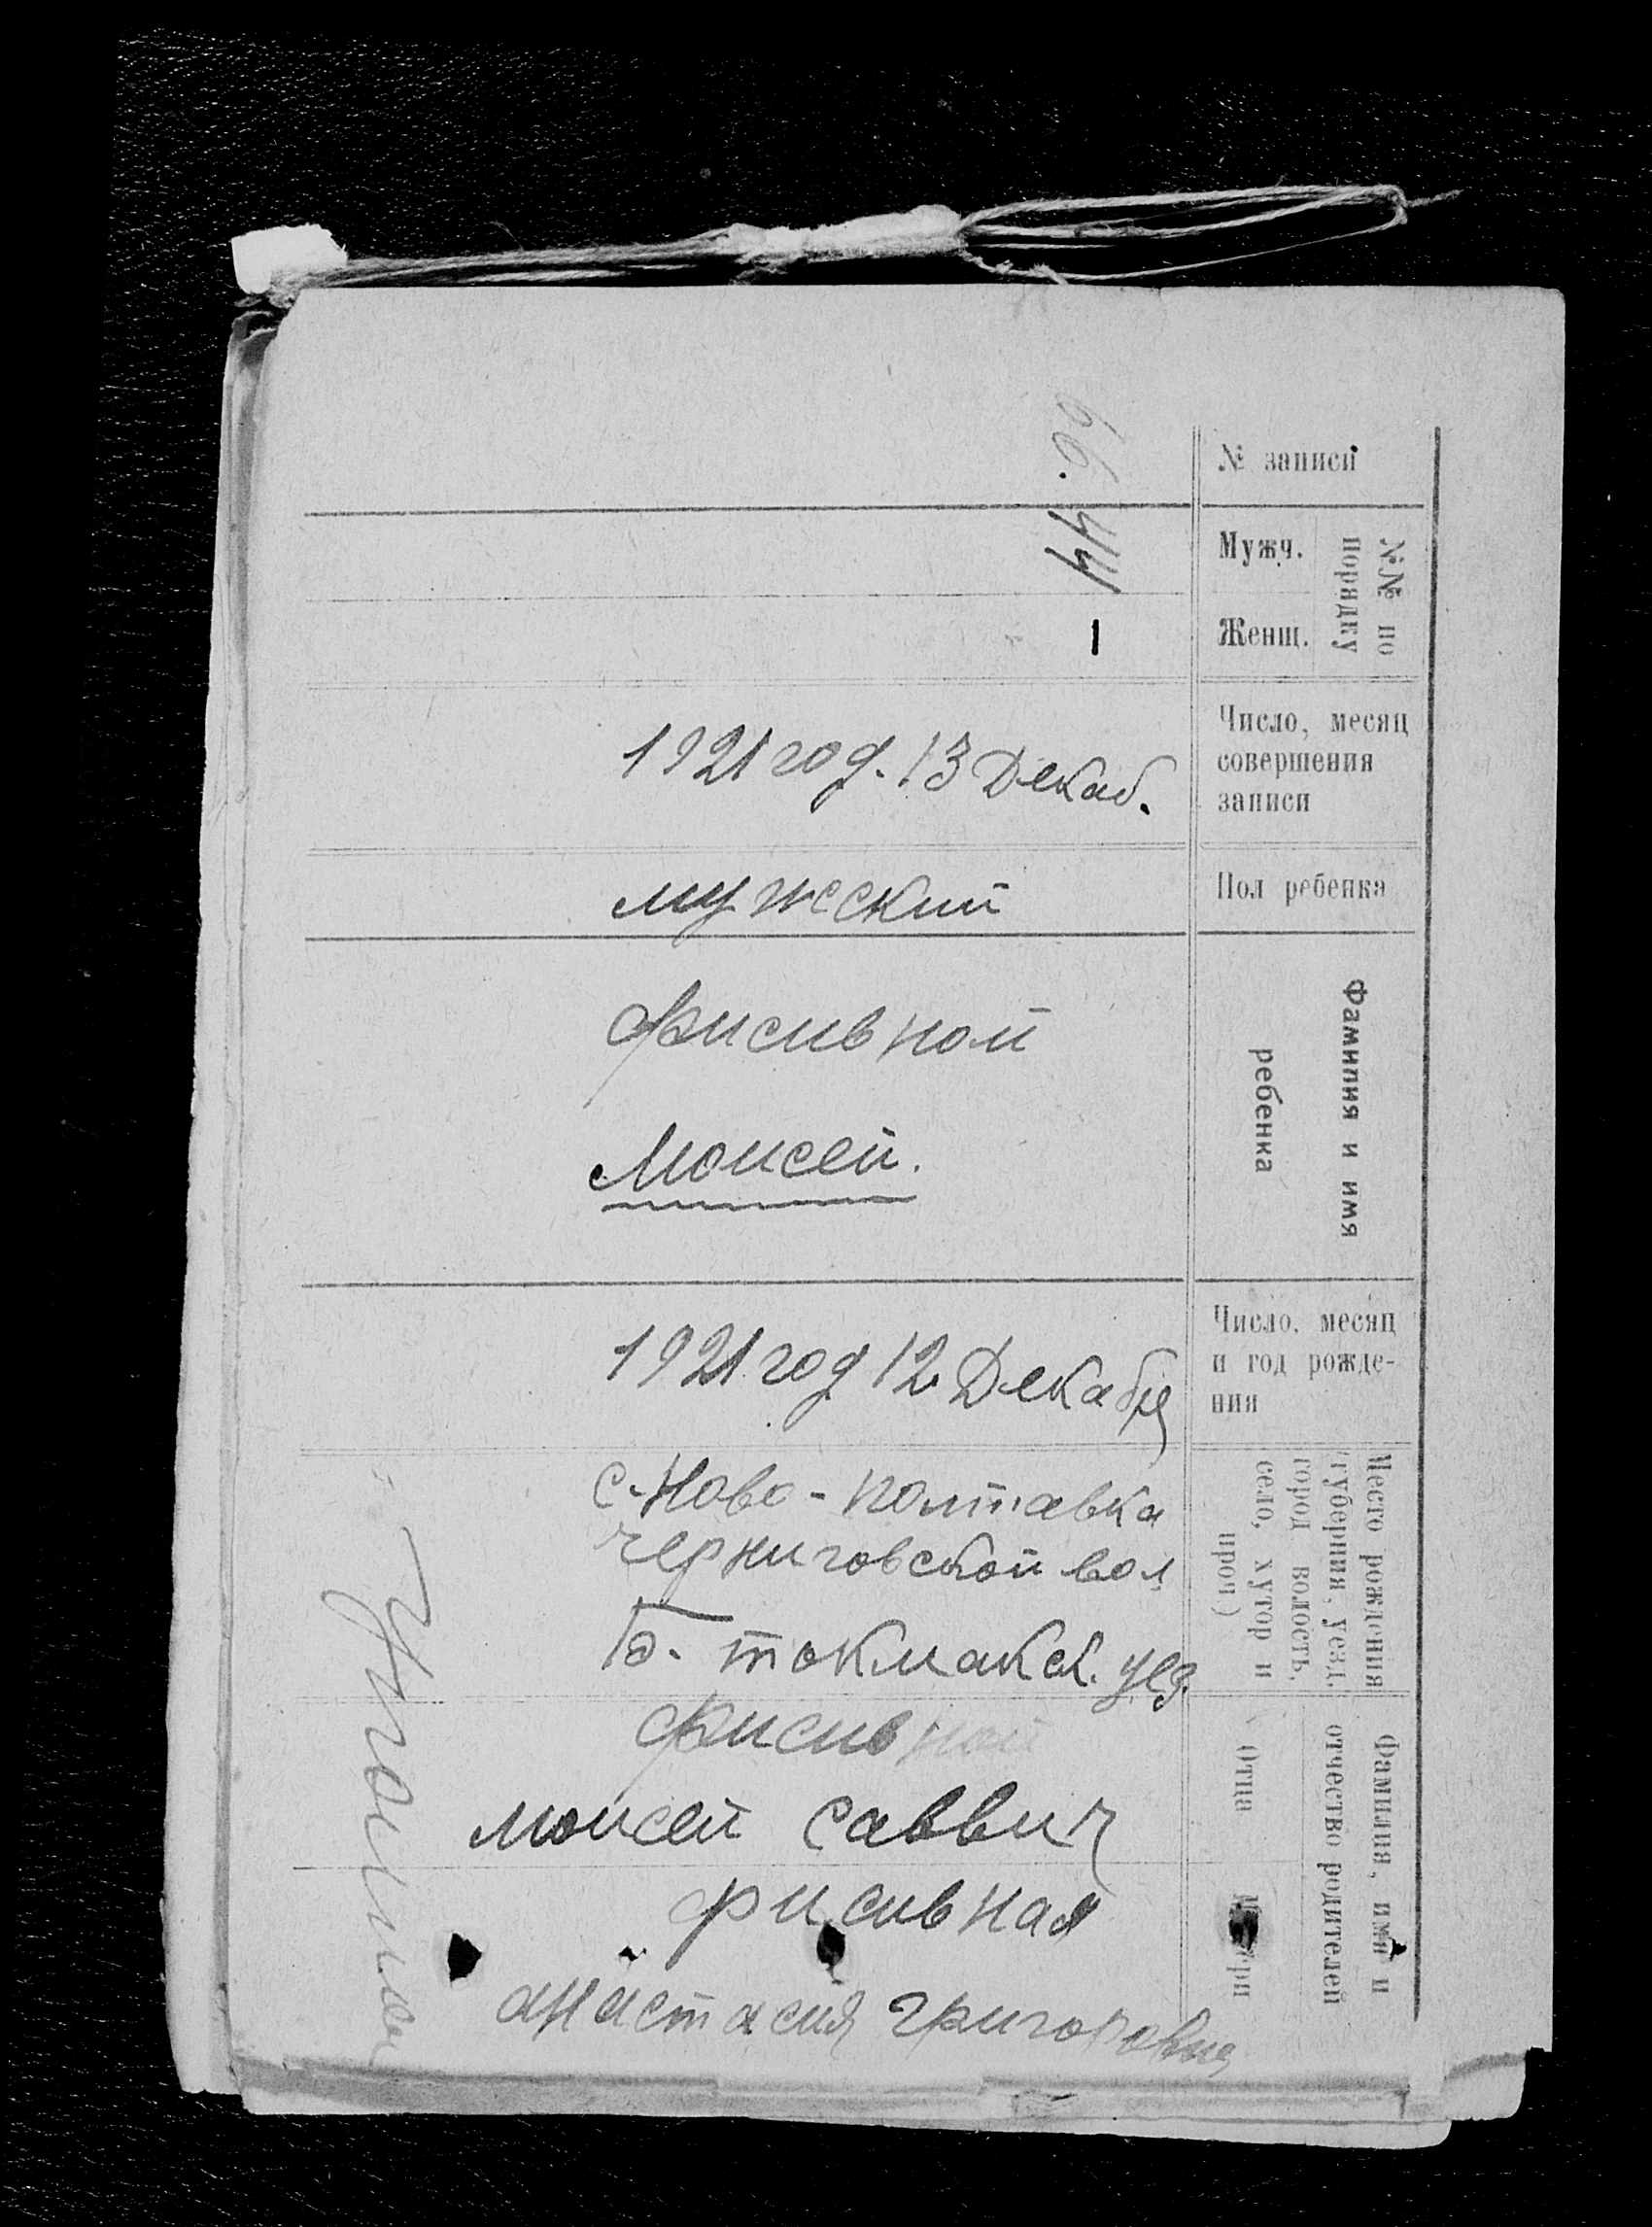 № записи
66.
№№ по порядку
Мужч.
44
Женщ.
1
Число, месяц
совершения
записи
1921 год. 13 Декаб.
Пол ребенка
мужеский
Фамилия и имя
ребенка
Фисивной
Моисей.
Число, месяц
и год рожде-
ния
1921 год 12 Декабря
Место рождения
(губерния, уезд,
город волость,
село, хутор и
проч)
с. Ново-полтавка
черниговской вол
Б. токмакск. уезд.
Фамилия, имя и
отчество родителей
Отца
Фисивной
моисей саввич
Матери
фисивная
анастасия григоровна